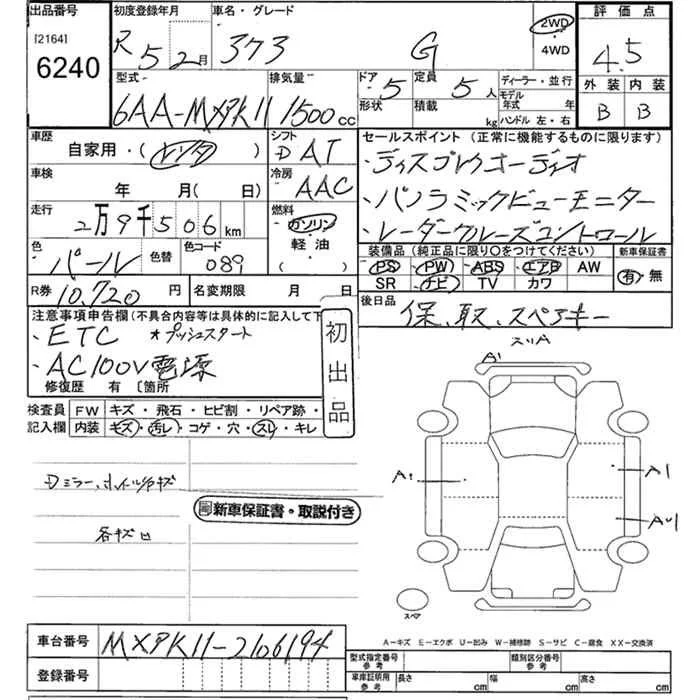 出品番号 初度登録年月 車名・グレード 2WD 評価点
[2164] R 5 2月 G 4WD 4.5
6240 型式 排気量 ドア 5 定員 5人 ディーラー・並行 外装 内装
6AA-MXPK11 1500cc 形状 積載 kg モデル年式 年 B B
ハンドル 左・右
車歴 自家用・( ) シフト DAT セールスポイント (正常に機能するものに限ります)
・ディスプレイオーディオ
車検 年 月( 日) 冷房 AAC ・パノラミックビューモニター
走行 2万9千506km 燃料 ガソリン・軽油 ( ) ・レーダークルーズコントロール
色 パール 色替 色コード 089 装備品 (純正品に限り〇をつけてください) 新車保証書
PS PW ABS エアB AW 有・無
SR ナビ TV カワ
R券 10,720円 名変期限 月 日 後日品 保、取、スペアキー
注意事項申告欄(不具合内容等は具体的に記入して下
・ETC *プッシュスタート
・AC100V電源
修復歴 有 [箇所
初出品
検査員記入欄 FW キズ・飛石・ヒビ割・リペア跡・
内装 キズ・汚レ・コゲ・穴・スレ・キレ
A1
A1 A1
Dミラー、ホイルキズ
新車保証書・取説付き
AU1
各キズ凹
スペア
A-キズ E-エクボ U-凹み W-補修跡 S-サビ C-腐食 XX-交換済
車台番号 MXPK11-2106194
型式指定番号 参考 類別区分番号 参考
登録番号 車庫証明用 参考 長さ cm 幅 cm 高さ cm